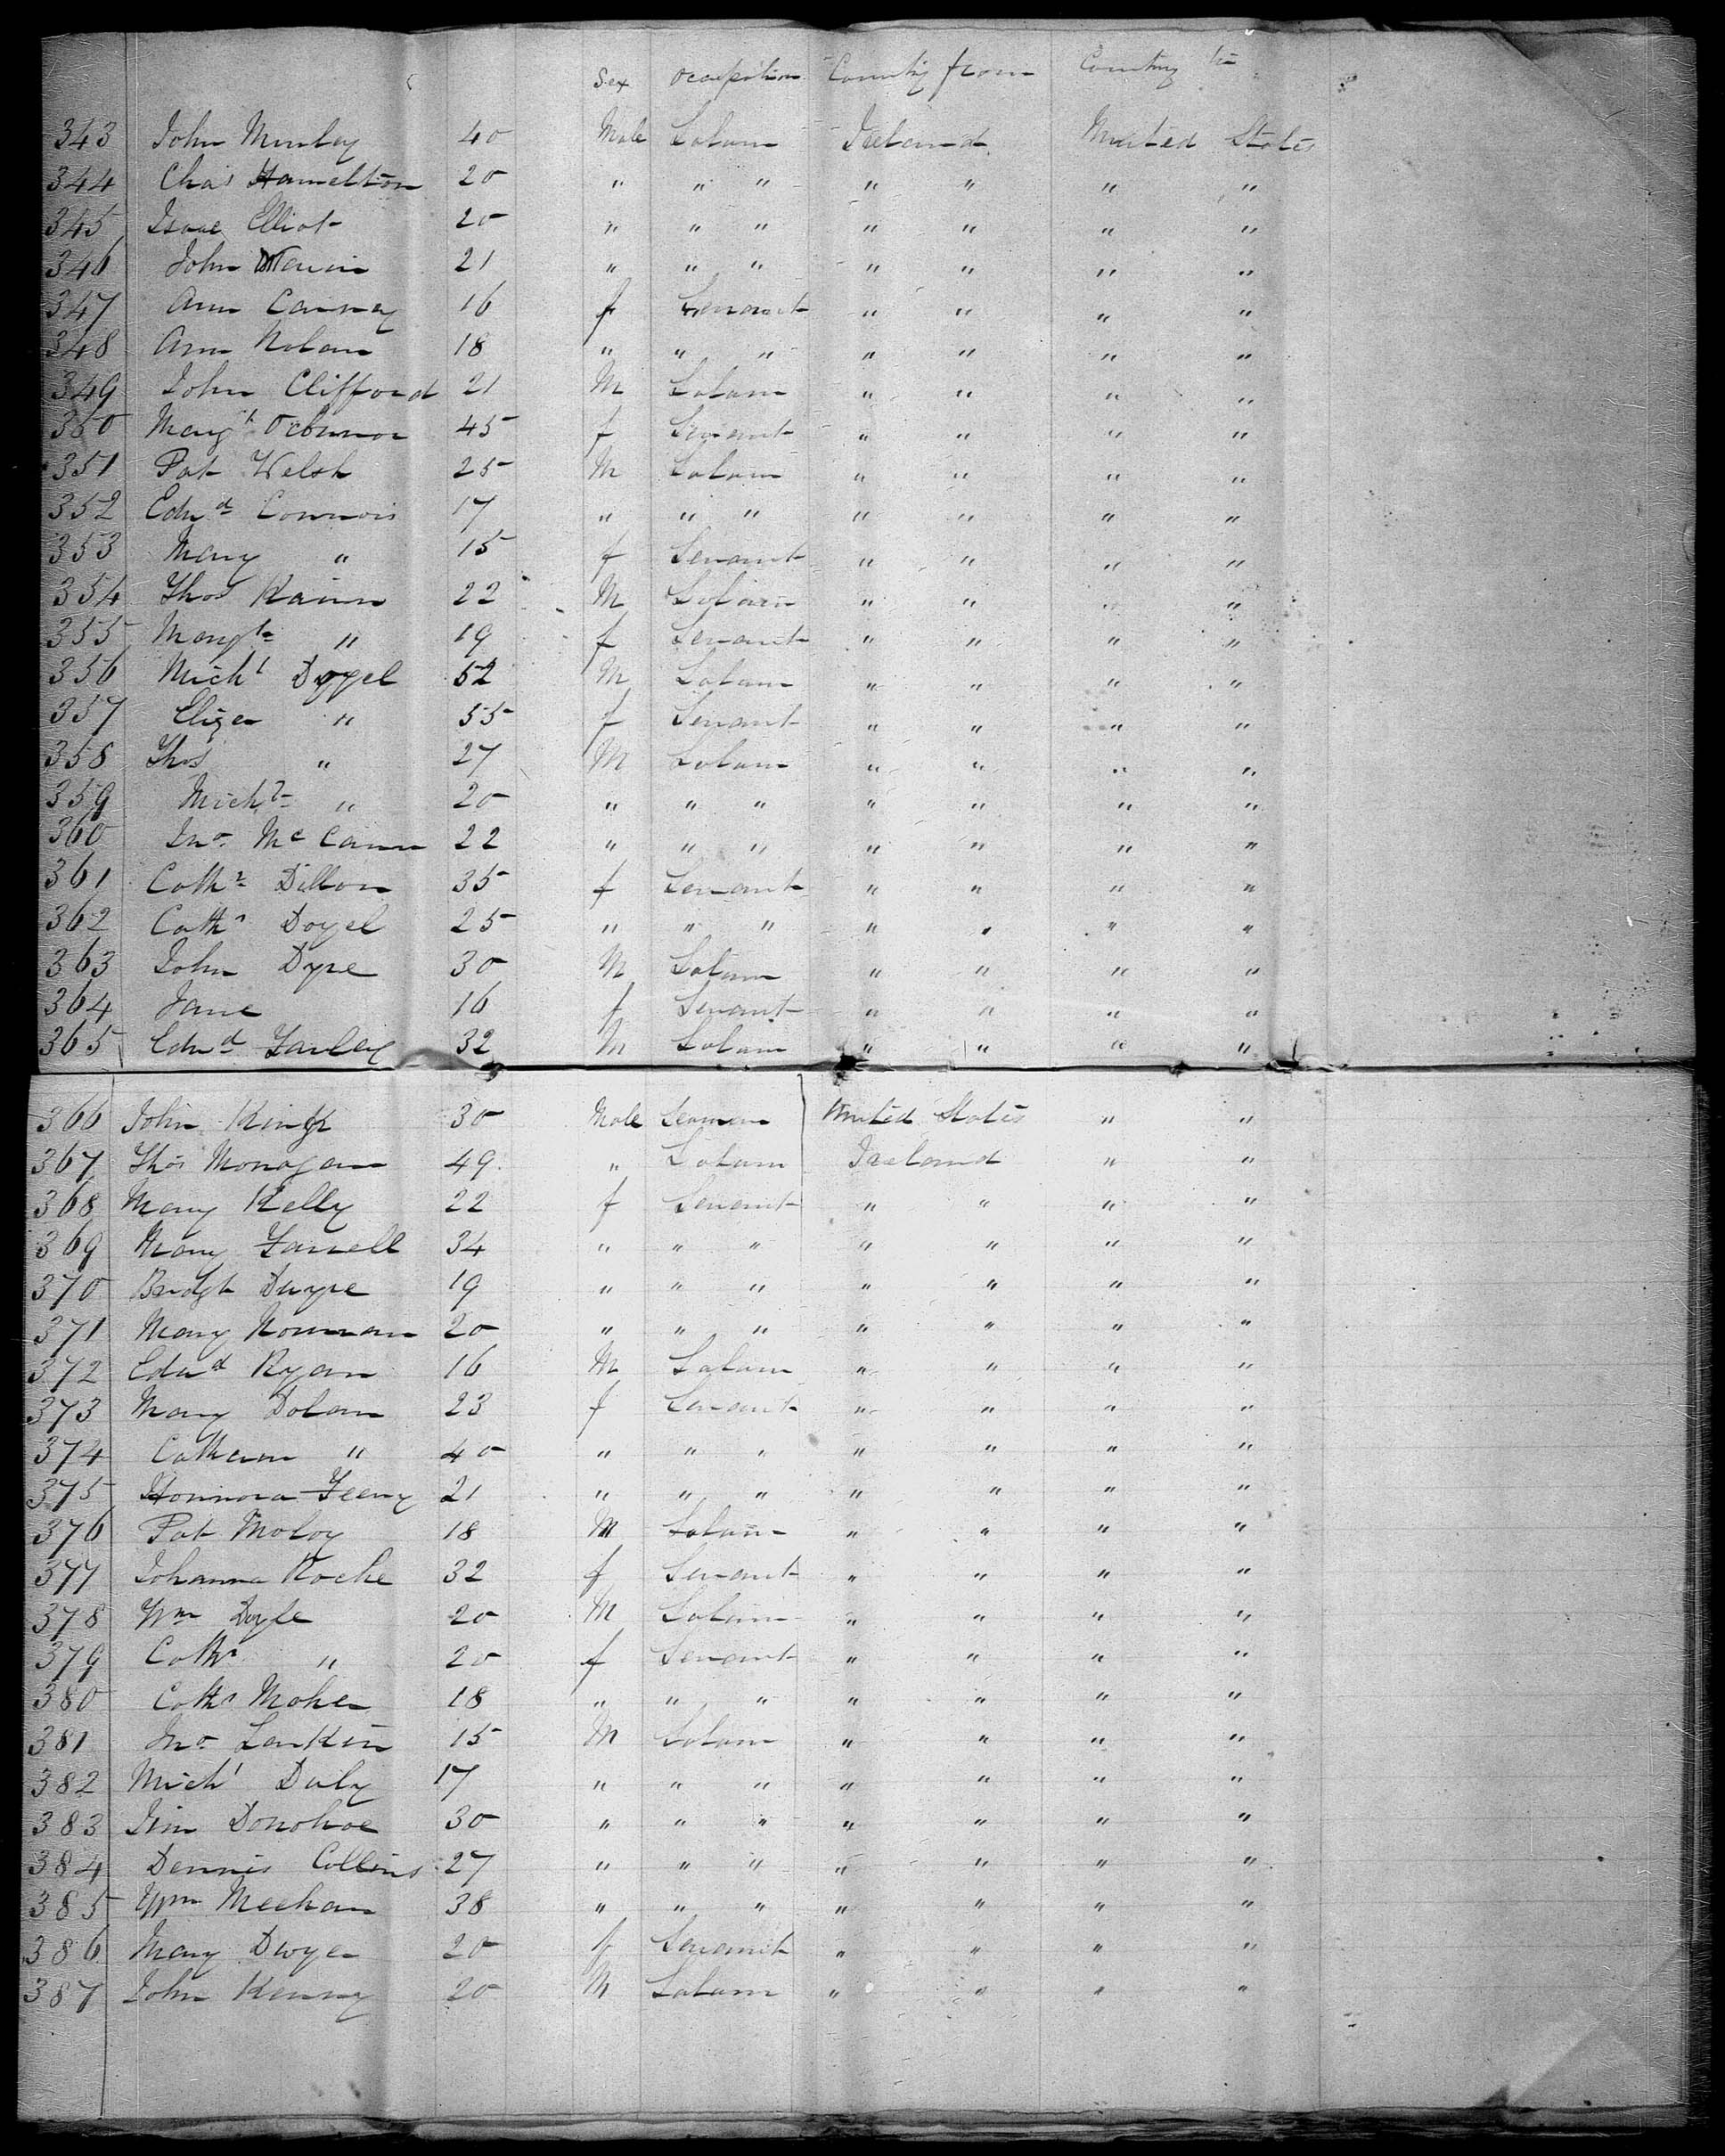 Sex Occupation Country from Country to
343 John Munley 40 Male Labour Ireland United States
344 Chas Hamelton 20 " " " " " " "
345 Isaac Elliot 20 " " " " " " "
346 John 21 " " " " " " "
347 Ann Canney 16 f Servant " " " "
348 Ann Nolan 18 " " " " " " "
349 John Clifford 21 M Labour " " " "
350 Margt O'Connor 45 f Servant " " " "
351 Pat Welsh 25 M Labour " " " "
352 Edwd Connors 17 " " " " " " "
353 Mary " 15 f Servant " " " "
354 Thos 22 M Labour " " " "
355 Margt " 19 f Servant " " " "
356 Michl Doyel 52 M Labour " " " "
357 Eliza " 55 f Servant " " " "
358 Thos " 27 M Labour " " " "
359 Michl " 20 " " " " " " "
360 Jno. McCann 22 " " " " " " "
361 Cathn Dillon 35 f Servant " " " "
362 Cathn Doyel 25 " " " " " " "
363 John Dyre 30 M Labour " " " "
364 Jane 16 f Servant " " " "
365 Edwd Farley 32 M Labour " " " "
366 John King 30 Male Seaman United States " "
367 Thos Monagan 49 " Labour Ireland " "
368 Mary Kelly 22 f Servant " " " "
369 Mary Farrell 34 " " " " " " "
370 Bridgt Dwyre 19 " " " " " " "
371 Mary Nounan 20 " " " " " " "
372 Edwd Ryan 16 M Labour " " " "
373 Mary Dolan 23 f Servant " " " "
374 Cathern " 40 " " " " " " "
375 Honnora Feeny 21 " " " " " " "
376 Pat Moloy 18 M Labour " " " "
377 Johanna Roche 32 f Servant " " " "
378 Wm Doyle 20 M Labour " " " "
379 Cathn " 20 f Servant " " " "
380 Cathn Maher 18 " " " " " " "
381 Jno. Larkin 15 M Labour " " " "
382 Michl Daly 17 " " " " " " "
383 Jim Donohoe 30 " " " " " " "
384 Dennis Collins 27 " " " " " " "
385 Wm Meehan 38 " " " " " " "
386 Mary Dwyer 20 f Servant " " " "
387 John Kenny 20 M Labour " " " "